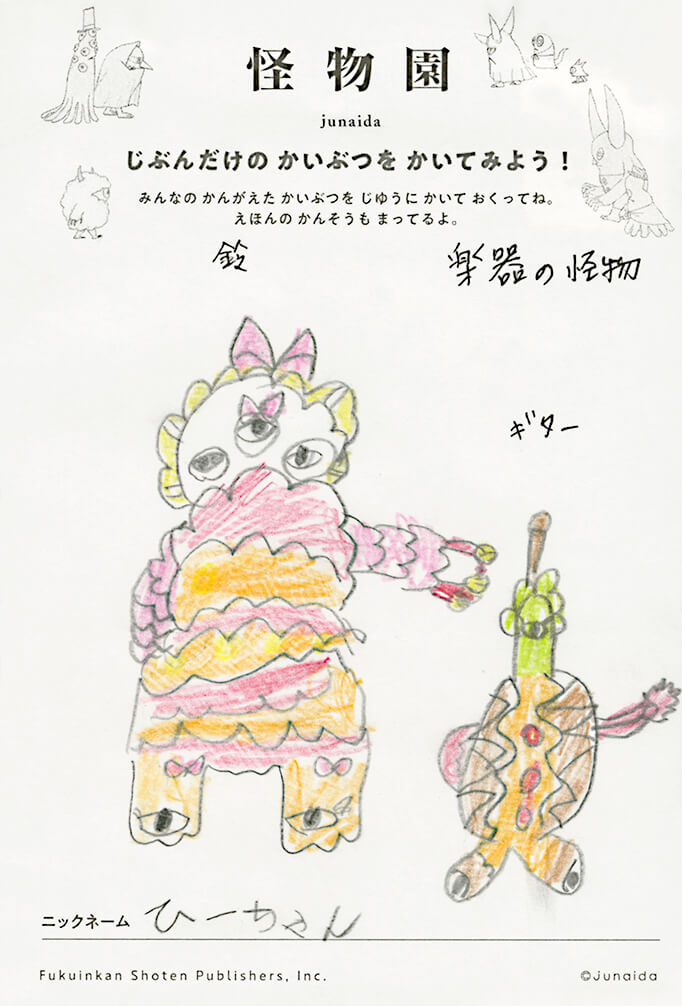 怪物園
junaida
じぶんだけの かいぶつを かいてみよう！
みんなの かんがえた かいぶつを じゆうに かいて おくってね。
えほんの かんそうも まってるよ。
鈴
楽器の怪物
ギター
ニックネーム ひーちゃん
Fukuinkan Shoten Publishers, Inc.
©junaida